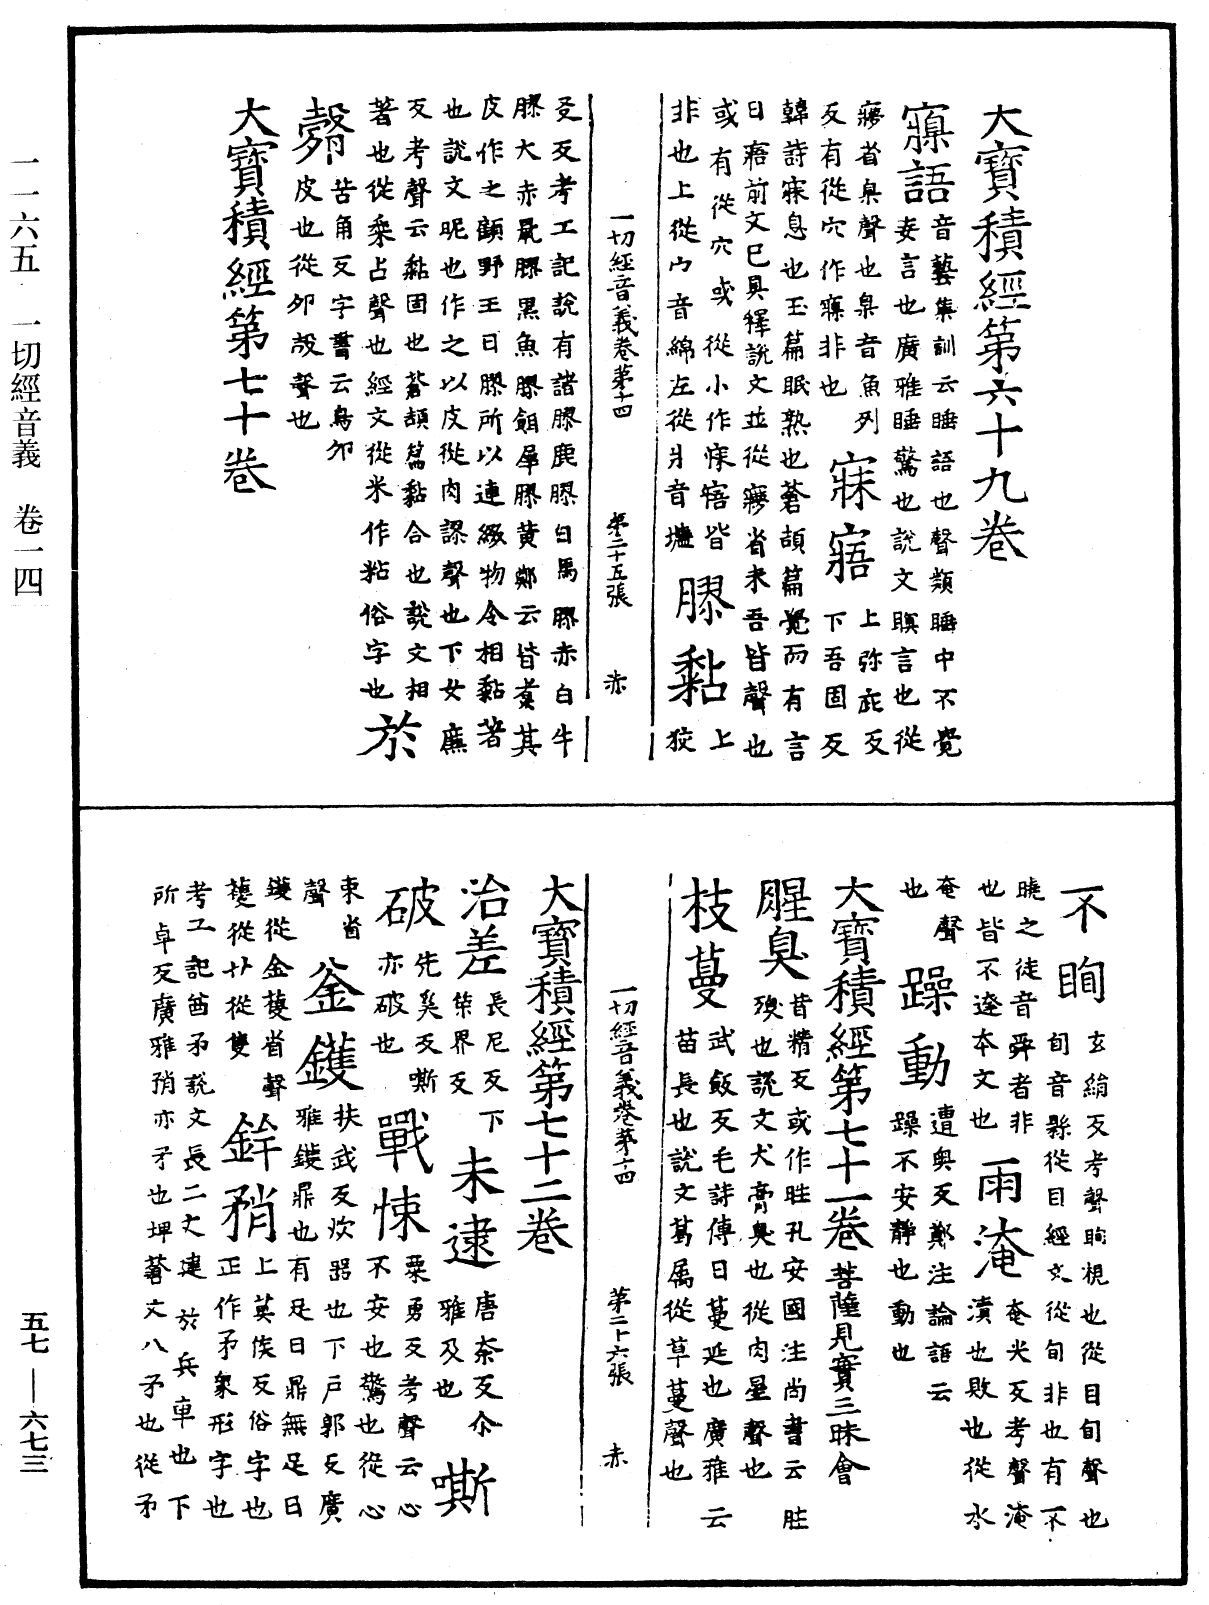 一一六五　一切經音義　卷一四
五七——六七三
大寶積經第六十九卷
寱語音藝集訓云睡語也聲類睡中不覺
妄言也廣雅睡驚也說文瞑言也從
㝱省臬聲也臬音魚列
反有從穴作窫非也
寐寤上弥庇反
下吾固反
韓詩寐息也玉篇眠熟也蒼頡篇覺而有言
曰寤前文已具釋說文並從㝱省未吾皆聲也
或有從穴或從小作悚𥧌皆
非也上從宀音綿左從爿音墻
膠黏上
狡
一切經音義卷第十四　第二十五張　赤
反考工記說有諸膠鹿膠白馬膠赤白牛
膠大赤鼠膠黑魚膠餌犀膠黃鄭云皆煑其
皮作之顧野王曰膠所以連綴物令相黏著
也說文昵也作之以皮從肉翏聲也下女廉
反考聲云黏固也蒼頡篇黏合也說文相
著也從黍占聲也經文從米作粘俗字也
於
㱿苦角反字書云鳥卵
皮也從卵㱿聲也
大寶積經第七十卷
不眴玄絹反考聲眴視也從目旬聲也
旬音縣從目經文從旬非也有不
曉之徒音舜者非
也皆不達本文也
雨淹奄光反考聲淹
漬也敗也從水
奄聲
也
躁動遭奧反鄭注論語云
躁不安靜也動也
大寶積經第七十一卷菩薩見實三昧會
腥臭昔精反或作胜孔安國注尚書云胜
殠也說文犬膏臭也從肉星聲也
枝蔓武飯反毛詩傳曰蔓延也廣雅云
苗長也說文葛属從草蔓聲也
一切經音義卷第十四　第二十六張　赤
大寶積經第七十二卷
治差長尼反下
柴界反
未逮唐柰反尒
雅及也
嘶
破先奚反嘶
亦破也
戰悚粟勇反考聲云心
不安也驚也從心
束省
聲
釜鑊扶武反炊器也下戶郭反廣
雅鑊鼎也有足曰鼎無足曰
鑊從金蒦省聲
蒦從艹從隻
鉾矟上莫侯反俗字也
正作矛象形字也
考工記酋矛說文長二丈建於兵車也下
所卓反廣雅矟亦矛也埤蒼丈八矛也從矛